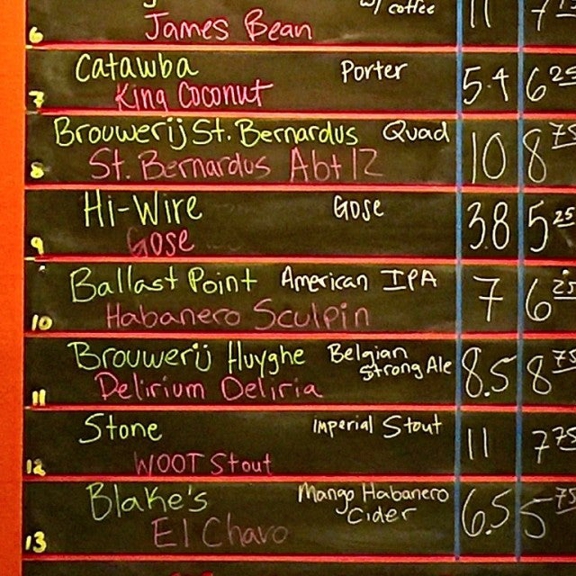 w/ coffee 11
6 James Bean
Catawba Porter 5.4 6 25
7 King Coconut
Brouwerij St. Bernardus Quad 10 8 75
8 St. Bernardus Abt 12
Hi-Wire Gose 3.8 5 25
9 Gose
Ballast Point American IPA 7 6 25
10 Habanero Sculpin
Brouwerij Huyghe Belgian Strong Ale 8.5 8 75
11 Delirium Deliria
Stone Imperial Stout 11 7 75
12 WOOT Stout
Blake's Mango Habanero Cider 6.5 5 75
13 El Chavo